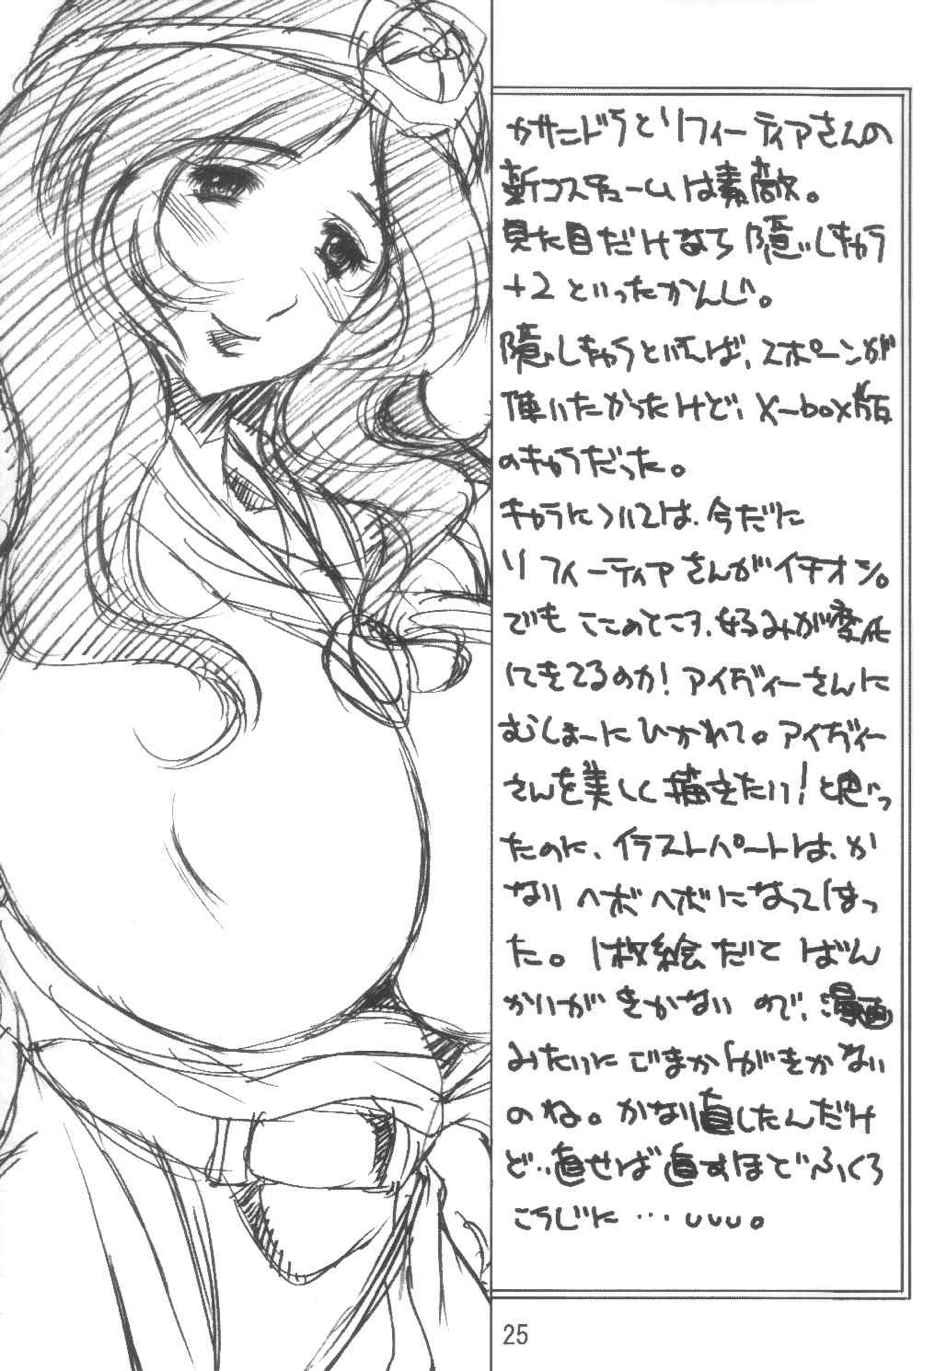 カサンドラとソフィーティアさんの
新コスチュームは素敵。
見た目だけなら隠しキャラ
+2といったかんじ。
隠しキャラといえば、スポーンが
使いたかったけど、X-box版
のキャラだった。
キャラについては、今だに
ソフィーティアさんがイチオシ。
でもここのところ、好みが変化
してきてるのか!アイヴィーさんに
むしょーにひかれて。アイヴィー
さんを美しく描きたい!と思っ
たのに、イラストパートは、か
なりヘボヘボになってしまっ
た。1枚絵だとばん
かいがきかないので、漫画
みたいにごまかしがきかない
のね。かなり直したんだけ
ど、直せば直すほどふくろ
こうじに…UUU。
25